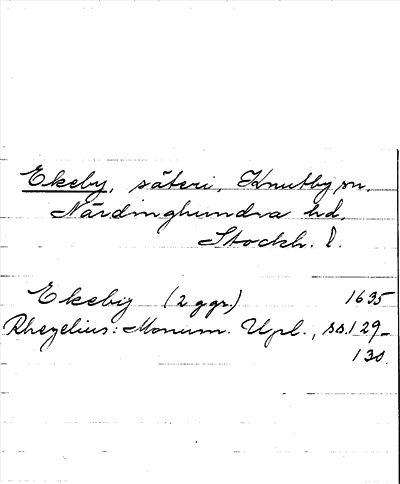 Ekeby, säteri, Knutby sn.
Närdinghundra hd,
Stockh. l.
Ekeby (2 ggr.) 1635
Rhezelius: Monum. Upl., ss. 129-
130.